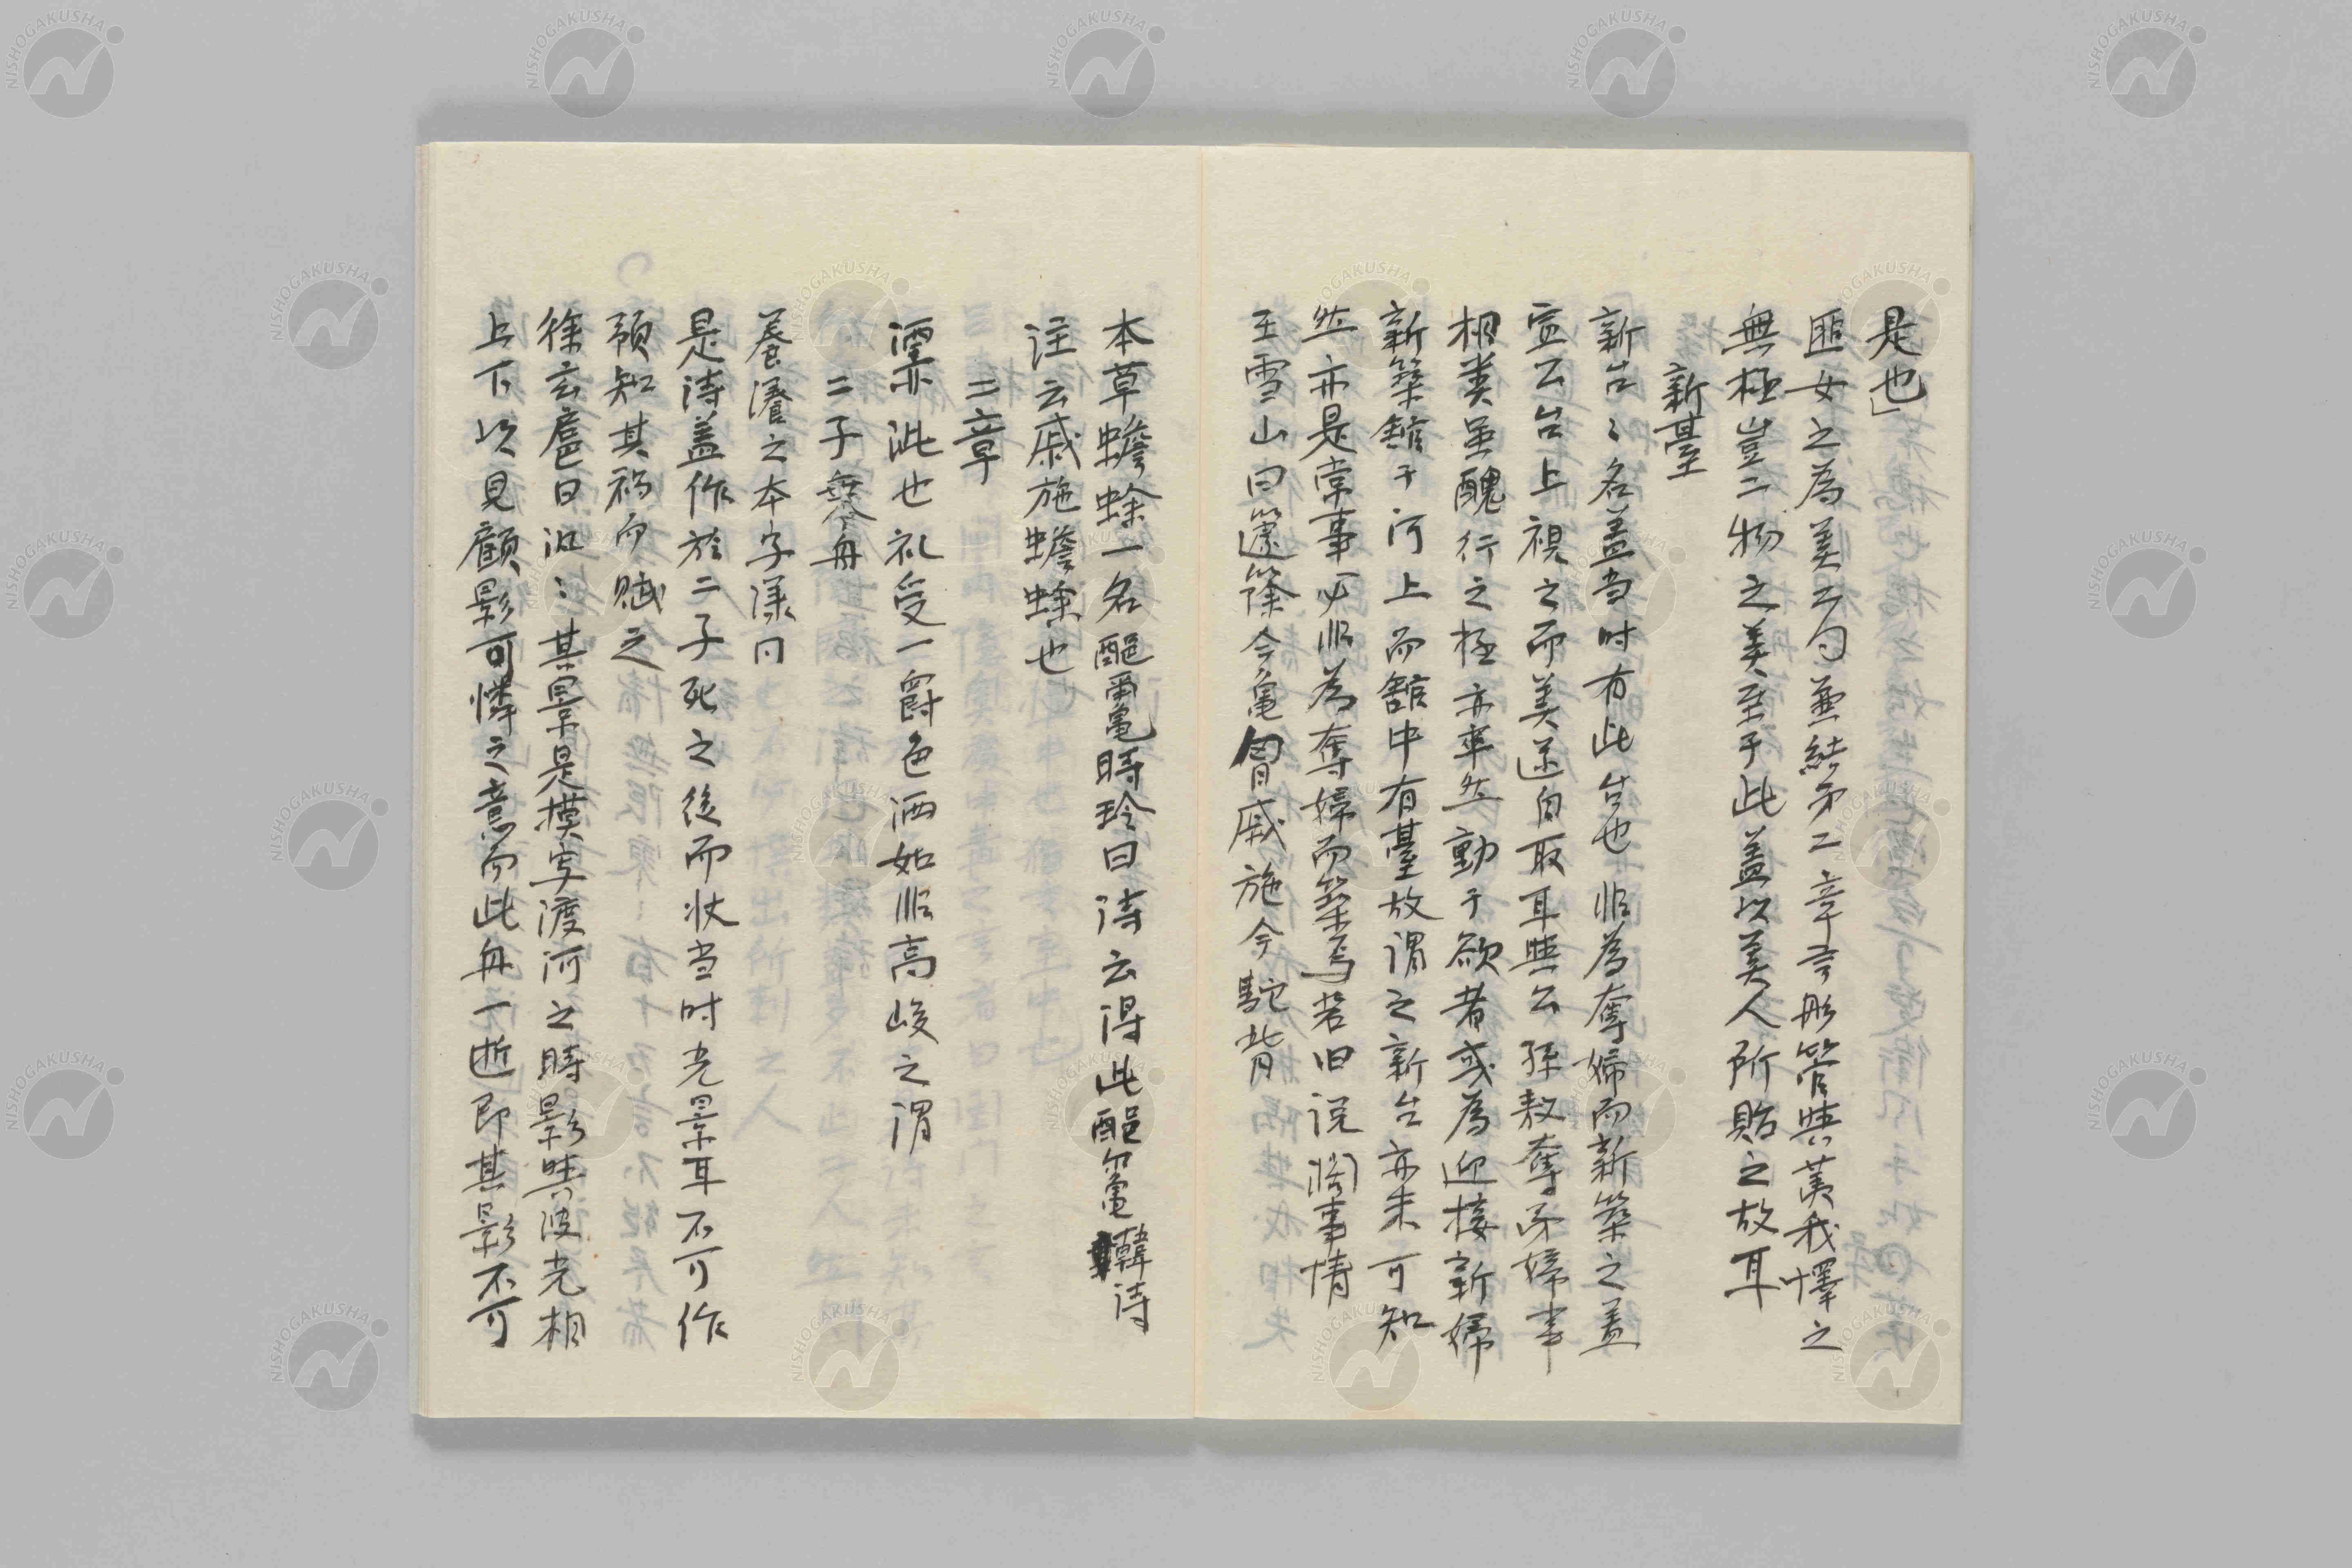 是也」
匪女之為美二句兼結第二章言彤管與荑我懌之
無極豈二物之美至于此蓋以美人所貽之故耳
新臺
新台〻名蓋当时有此台也非為奪婦而新築之蓋
宣公台上視之而美遂自取耳與公孫敖奪弟婦事
相类虽醜行之極亦率然動于欲者或為迎接新婦
新築館于河上而館中有臺故謂之新台亦未可知
然亦是常事必非為奪婦而築焉若旧说闊事情
王雪山曰籧篨今龜胷戚施今駝背
本草蟾蜍一名𪓰𪓿時珍曰诗云得此𪓰𪓿韓诗
注云戚施蟾蜍也
二章
洒亦泚也礼受一爵色洒如非高峻之谓
二子乗舟
養瀁之本字漾同
是诗蓋作於二子死之後而状当时光景耳不可作
預知其禍而賦之
徐玄扈曰汎〻其景是模写渡河之時影與波光相
上下以見顧影可憐之意而此舟一逝即其影不可
NISHOGAKUSHA